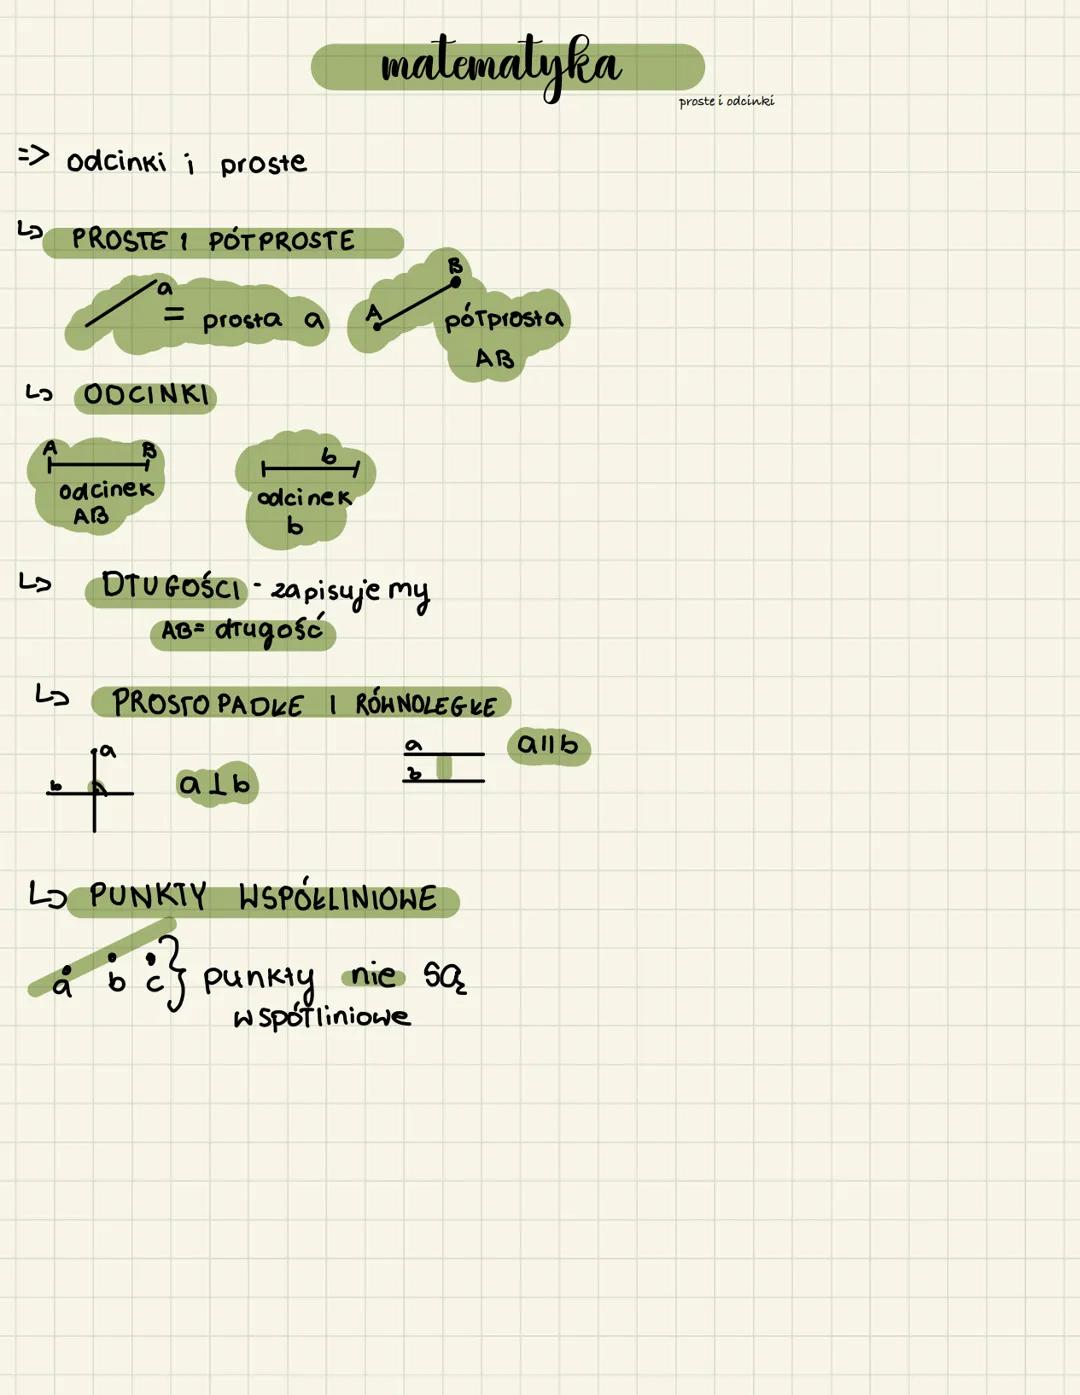 matematyka
proste i odcinki
=> odcinki i proste
↳ PROSTE I PÓŁPROSTE
a
= prosta a
A B
półprosta
AB
↳ ODCINKI
A B
odcinek
AB
b
odcinek
b
↳ DŁUGOŚCI - zapisujemy
AB= długość
↳ PROSTOPADŁE I RÓWNOLEGŁE
a
b
a⊥b
a
b
a||b
↳ PUNKTY WSPÓŁLINIOWE
a b c } punkty nie są
współliniowe